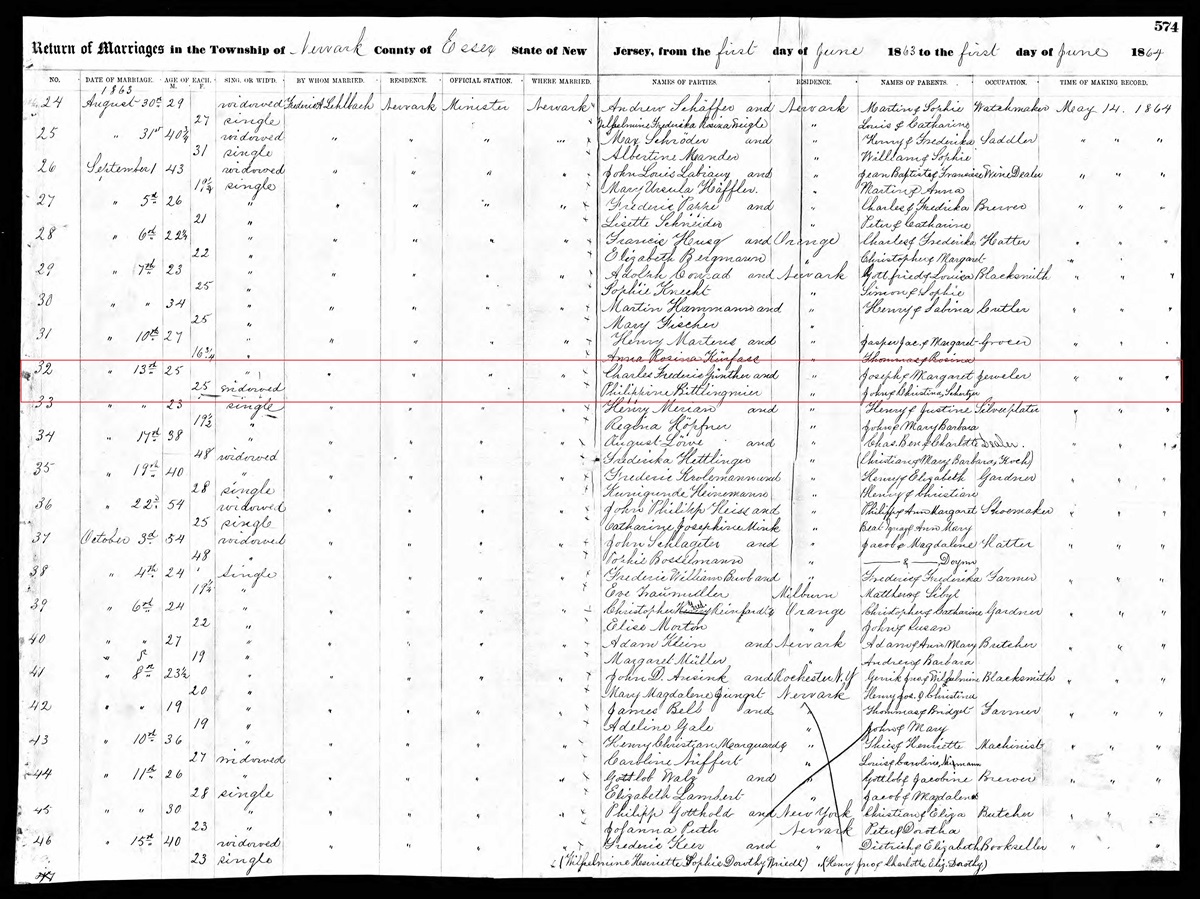 574
Return of Marriages in the Township of Newark County of Essex State of New Jersey, from the first day of June 1863 to the first day of June 1864
NO. DATE OF MARRIAGE. AGE OF EACH. M. F. SING. OR WID'D. BY WHOM MARRIED. RESIDENCE. OFFICIAL STATION. WHERE MARRIED. NAMES OF PARTIES. RESIDENCE. NAMES OF PARENTS. OCCUPATION. TIME OF MAKING RECORD.
1863
24 August 30th 29 widowed Frederic A Lehlbach Newark Minister Newark Andrew Schäffer and Newark Martin & Sophie Watchmaker May 14. 1864
27 single Wilhelmine Frederika Rosina Weigle " Louis & Catharine
25 " 31st 40¾ widowed " " " " Max Schröder and " Henry & Frederika Saddler " " "
31 single Albertine Mander " William & Sophie
26 September 1 43 widowed " " " " John Louis Labiaux and " Jean Baptiste & Francoise Wine Dealer " " "
single Mary Ursula Häffler. " Martin & Anna
27 " 5th 26 " " " " " Frederic Pappe and " Charles & Fredrika Brewer " " "
21 " Lisette Schneider " Peter & Catharine
28 " 6th 22¾ " " " " " Francis Husg and Orange Charles & Frederika Hatter " " "
22 " Elizabeth Bergmann " Christopher & Margaret
29 " 7th 23 " " " " " Adolph Conrad and Newark Gottfried & Louisa Blacksmith " " "
25 " Sophie Knecht " Simon & Sophie
30 " " 34 " " " " " Martin Hammann and " Henry & Sabina Cutler " " "
25 " Mary Fischer " "
31 " 10th 27 " " " " " Henry Martens and " Jasper Jac. & Margaret Grocer " " "
16¾ " Anna Rosina Künfasc " Thommas & Rosina
32 " 13th 25 " " " " " Charles Frederic Günther and " Joseph & Margaret Jeweler " " "
25 widowed Philippine Bittlingmier " John & Christina,
33 " " 23 single " " " " Henry Merian and " Henry & Justine Silverplater " " "
19½ " Regina Höpfner " John & Mary Barbara
34 " 17th 38 " " " " " August Löwe and " Chas. Ben & Charlotte Dealer. " " "
48 widowed Frederika Hettlinger " (Christian & Mary Barbara, Koch)
35 " 19th 40 " " " " " Frederic Krolemann and " Henry & Elizabeth Gardner " " "
28 single Kunigunde Heinemann " Henry & Christian
36 " 22d 54 widowed " " " " John Philipp Heiss and " Philipp & Ann Margaret Shoemaker " " "
25 single Catharine Josephine Mink " & Ann Mary
37 October 3d 54 widowed " " " " John Schlageter and " Jacob & Magdalene Hatter " " "
48 " Sophie Bosselmann " — & — Doynn
38 " 4th 24 single " " " " Frederic William Burb and " Frederic & Frederika Farmer " " "
" Eve Traumüller Milburn Matthew & Sibyl
39 " 6th 24 " " " " " Christopher Fred. Reinford & Orange Christopher & Catharine Gardner " " "
22 " Elise Morton " John & Susan
40 " " 27 " " " " " Adam Klein and Newark Adam & Ann Mary Butcher " " "
19 " Margaret Müller " Andrew & Barbara
41 " 8th 23½ " " " " " John D. Ansink and Rochester N.Y Gerrik Jno & Wilhelmine Blacksmith " " "
20 " Mary Magdalene Jüngst Newark Henry Jos. & Christina
42 " " 19 " " " " " James Bell and " Thommas & Bridget Farmer " " "
19 " Adeline Gale " John & Mary
43 " 10th 36 " " " " " Henry Christian Marquard & " Thies & Henriette Machinist " " "
27 widowed Caroline Niffert " Louis & Caroline,
44 " 11th 26 " " " " " Gottlob Walz and " Gottlob & Jacobine Brewer " " "
28 single Elizabeth Lambert " Jacob & Magdalena
45 " " 30 " " " " " Philipp Gotthold and New York Christian & Eliza Butcher " " "
23 " Johanna Puth Newark Peter & Dorotha
46 " 15th 40 widowed " " " " Frederic Keer and " Dietrich & Elizabeth Bookseller " " "
23 single (Wilhelmine Henriette Sophie Dorothy Wriedt) " (Henry Jno & Charlotte Eliz. Dorothy)
47